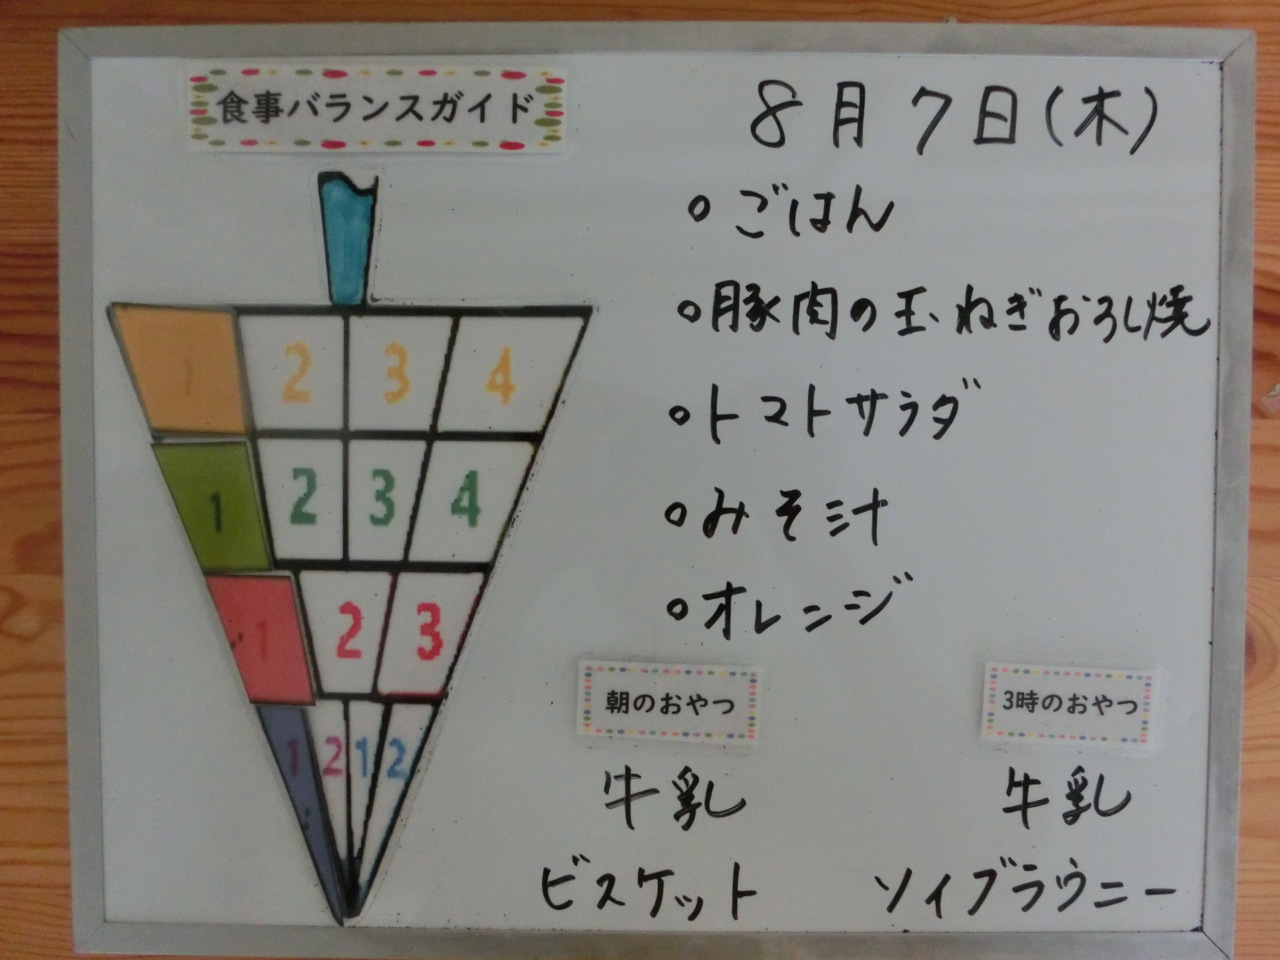 食事バランスガイド
8月7日(木)
。ごはん
。豚肉の玉ねぎおろし焼
。トマトサラダ
。みそ汁
。オレンジ
1 2 3 4
1 2 3 4
1 2 3
1 2 1 2
朝のおやつ
牛乳
ビスケット
3時のおやつ
牛乳
ソイブラウニー